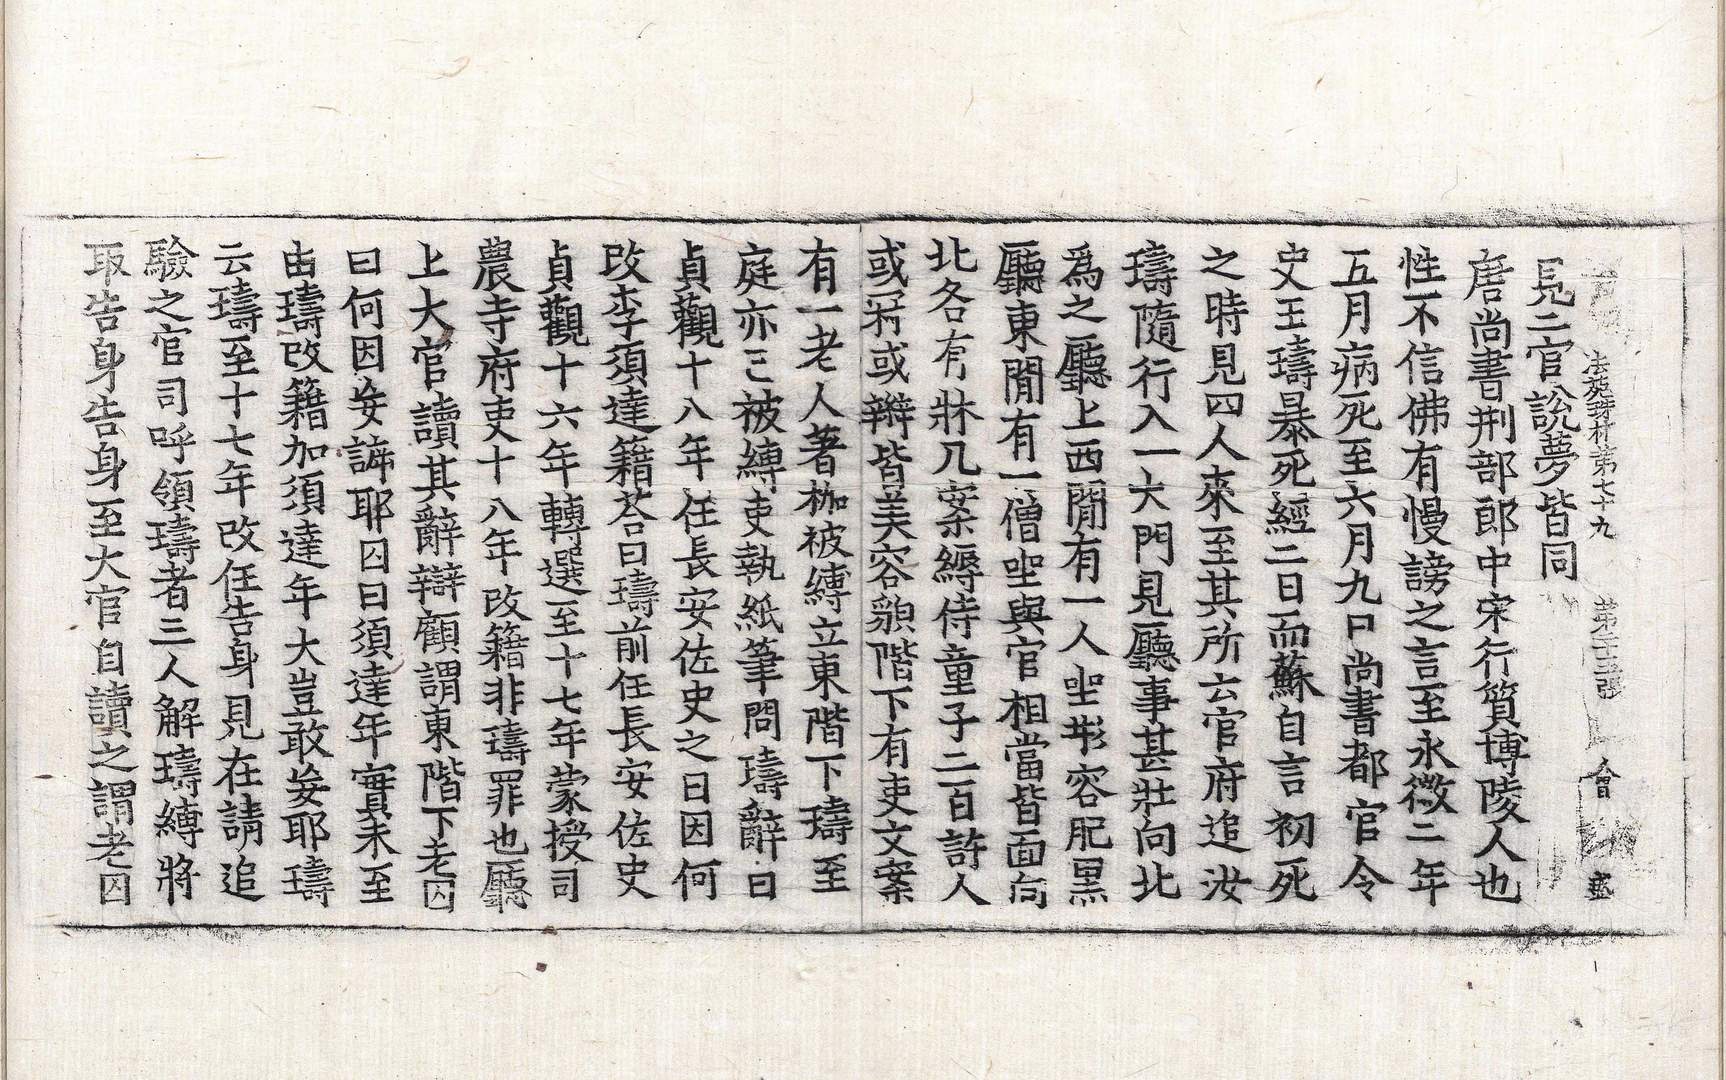 法苑珠林第七十九 第二十三張 會
長二官說夢皆同
唐尚書刑部郎中宋行質博陵人也
性不信佛有慢謗之言至永徽二年
五月病死至六月九日尚書都官令
史王璹暴死經二日而蘇自言初死
之時見四人來至其所云官府追汝
璹隨行入一大門見廳事甚壯向北
爲之廳上西閒有一人坐形容肥黑
廳東閒有一僧坐與官相當皆面向
北各有牀几案褥侍童子二百許人
或冠或辮皆美容貌階下有吏文案
有一老人著枷被縛立東階下璹至
庭亦已被縛吏執紙筆問璹辭曰
貞觀十八年任長安佐史之日因何
改李須達籍荅曰璹前任長安佐史
貞觀十六年轉選至十七年蒙授司
農寺府吏十八年改籍非璹罪也廳
上大官讀其辭辯顧謂東階下老囚
曰何因妄訴耶囚曰須達年實未至
由璹改籍加須達年大豈敢妄耶璹
云璹至十七年改任告身見在請追
驗之官司呼領璹者三人解璹縛將
取告身告身至大官自讀之謂老囚